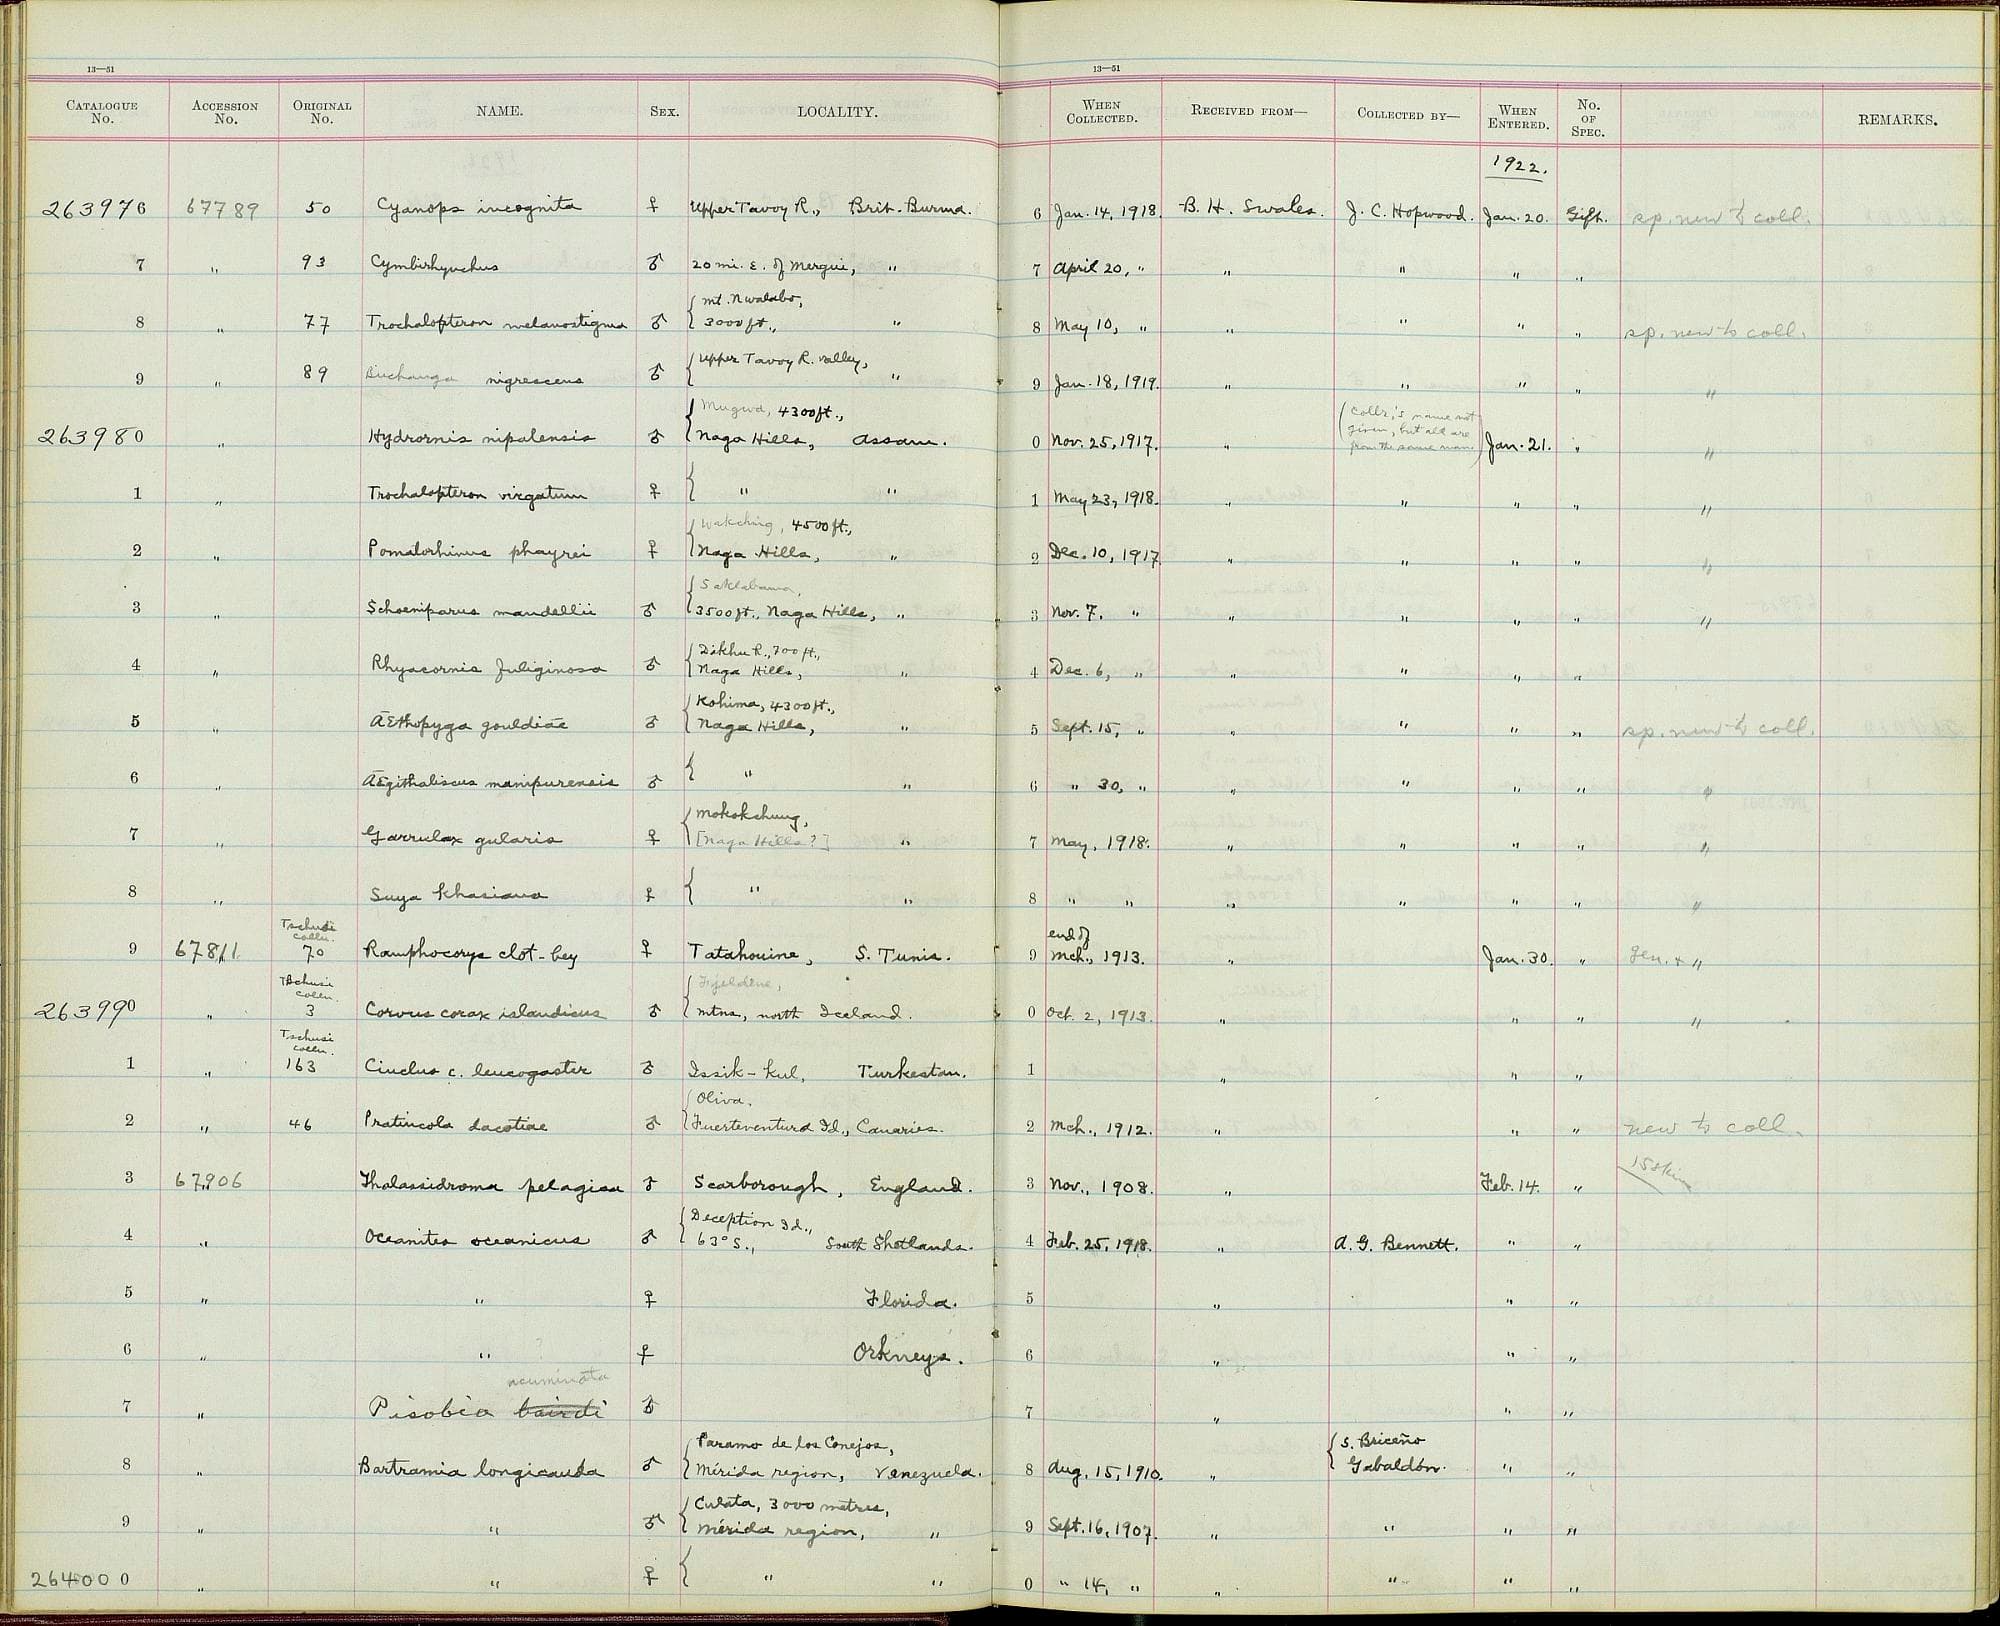 13—51 13—51
CATALOGUE No. ACCESSION No. ORIGINAL No. NAME. SEX. LOCALITY. WHEN COLLECTED. RECEIVED FROM— COLLECTED BY— WHEN ENTERED. No. OF SPEC. REMARKS.
1922.
263976 67789 50 Cyanops incognita ♀ Upper Tavoy R., Brit. Burma. 6 Jan. 14, 1918. B. H. Swales. J. C. Hopwood. Jan. 20. Gift. sp. new to coll.
7 " 93 Cymbirhynchus ♂ 20 mi. E. of Mergui, " 7 April 20, " " " " "
8 " 77 Trochalopteron melanostigma ♂ { Mt. Nwalabo,
3000 ft., " 8 May 10, " " " " " sp. new to coll.
9 " 89 Buchanga nigrescens ♂ { Upper Tavoy R. valley,
" 9 Jan. 18, 1919. " " " " "
263980 " Hydrornis nipalensis ♂ { Mugwa, 4300 ft.,
Naga Hills, Assam. 0 Nov. 25, 1917. " (Collr.'s name not
given, but all are
from the same man.) Jan. 21. " "
1 " Trochalopteron virgatum ♀ { " " 1 May 23, 1918. " " " " "
2 " Pomatorhinus phayrei ♀ { Wakching, 4500 ft.,
Naga Hills, " 2 Dec. 10, 1917 " " " " "
3 " Schoeniparus mandellii ♂ { Saklabama,
3500 ft., Naga Hills, " 3 Nov. 7. " " " " " "
4 " Rhyacornis fuliginosa ♂ { Dikhu R., 700 ft.,
Naga Hills, " 4 Dec. 6, " " " " "
5 " Æthopyga gouldiae ♂ { Kohima, 4300 ft.,
Naga Hills, " 5 Sept. 15, " " " " " sp. new to coll.
6 " Ægithaliscus manipurensis ♂ { " " 6 " 30, " " " " " "
7 " Garrulax gularis ♀ { Mokokchung,
[Naga Hills?] " 7 May, 1918. " " " " "
8 " Suya khasiana ♀ { " " 8 " " " " " " "
9 67811 Tschusi
colln.
70 Ramphocorys clot-bey ♀ Tatahouine, S. Tunis. 9 end of
Mch., 1913. " Jan. 30. " gen. & "
263990 " Tschusi
colln.
3 Corvus corax islandicus ♂ { Fjeldene,
mtns, north Iceland. 0 Oct. 2, 1913. " " " "
1 " Tschusi
colln.
163 Cinclus c. leucogaster ♂ Issik-kul, Turkestan. 1 " " "
2 " 46 Pratincola dacotiae ♂ { Oliva,
Fuerteventura Id., Canaries. 2 Mch., 1912. " " " new to coll.
3 67906 Thalassidroma pelagica ♂ Scarborough, England. 3 Nov., 1908. " Feb. 14. " 1 Skin
4 " Oceanites oceanicus ♂ { Deception Id.,
63° S., South Shetlands. 4 Feb. 25, 1918. " A. G. Bennett. " "
5 " " ♀ Florida. 5 " " "
6 " " ♀ Orkneys. 6 " " "
acuminata
7 " Pisobia bairdi ♂ 7 " " "
8 " Bartramia longicauda ♂ { Paramo de los Conejos,
Mérida region, Venezuela. 8 Aug. 15, 1910. " { S. Briceño
Gabaldón. " "
9 " " ♂ { Culata, 3000 metres,
Mérida region, " 9 Sept. 16, 1907. " " " "
264000 " " ♀ { " " 0 " 14, " " " " "